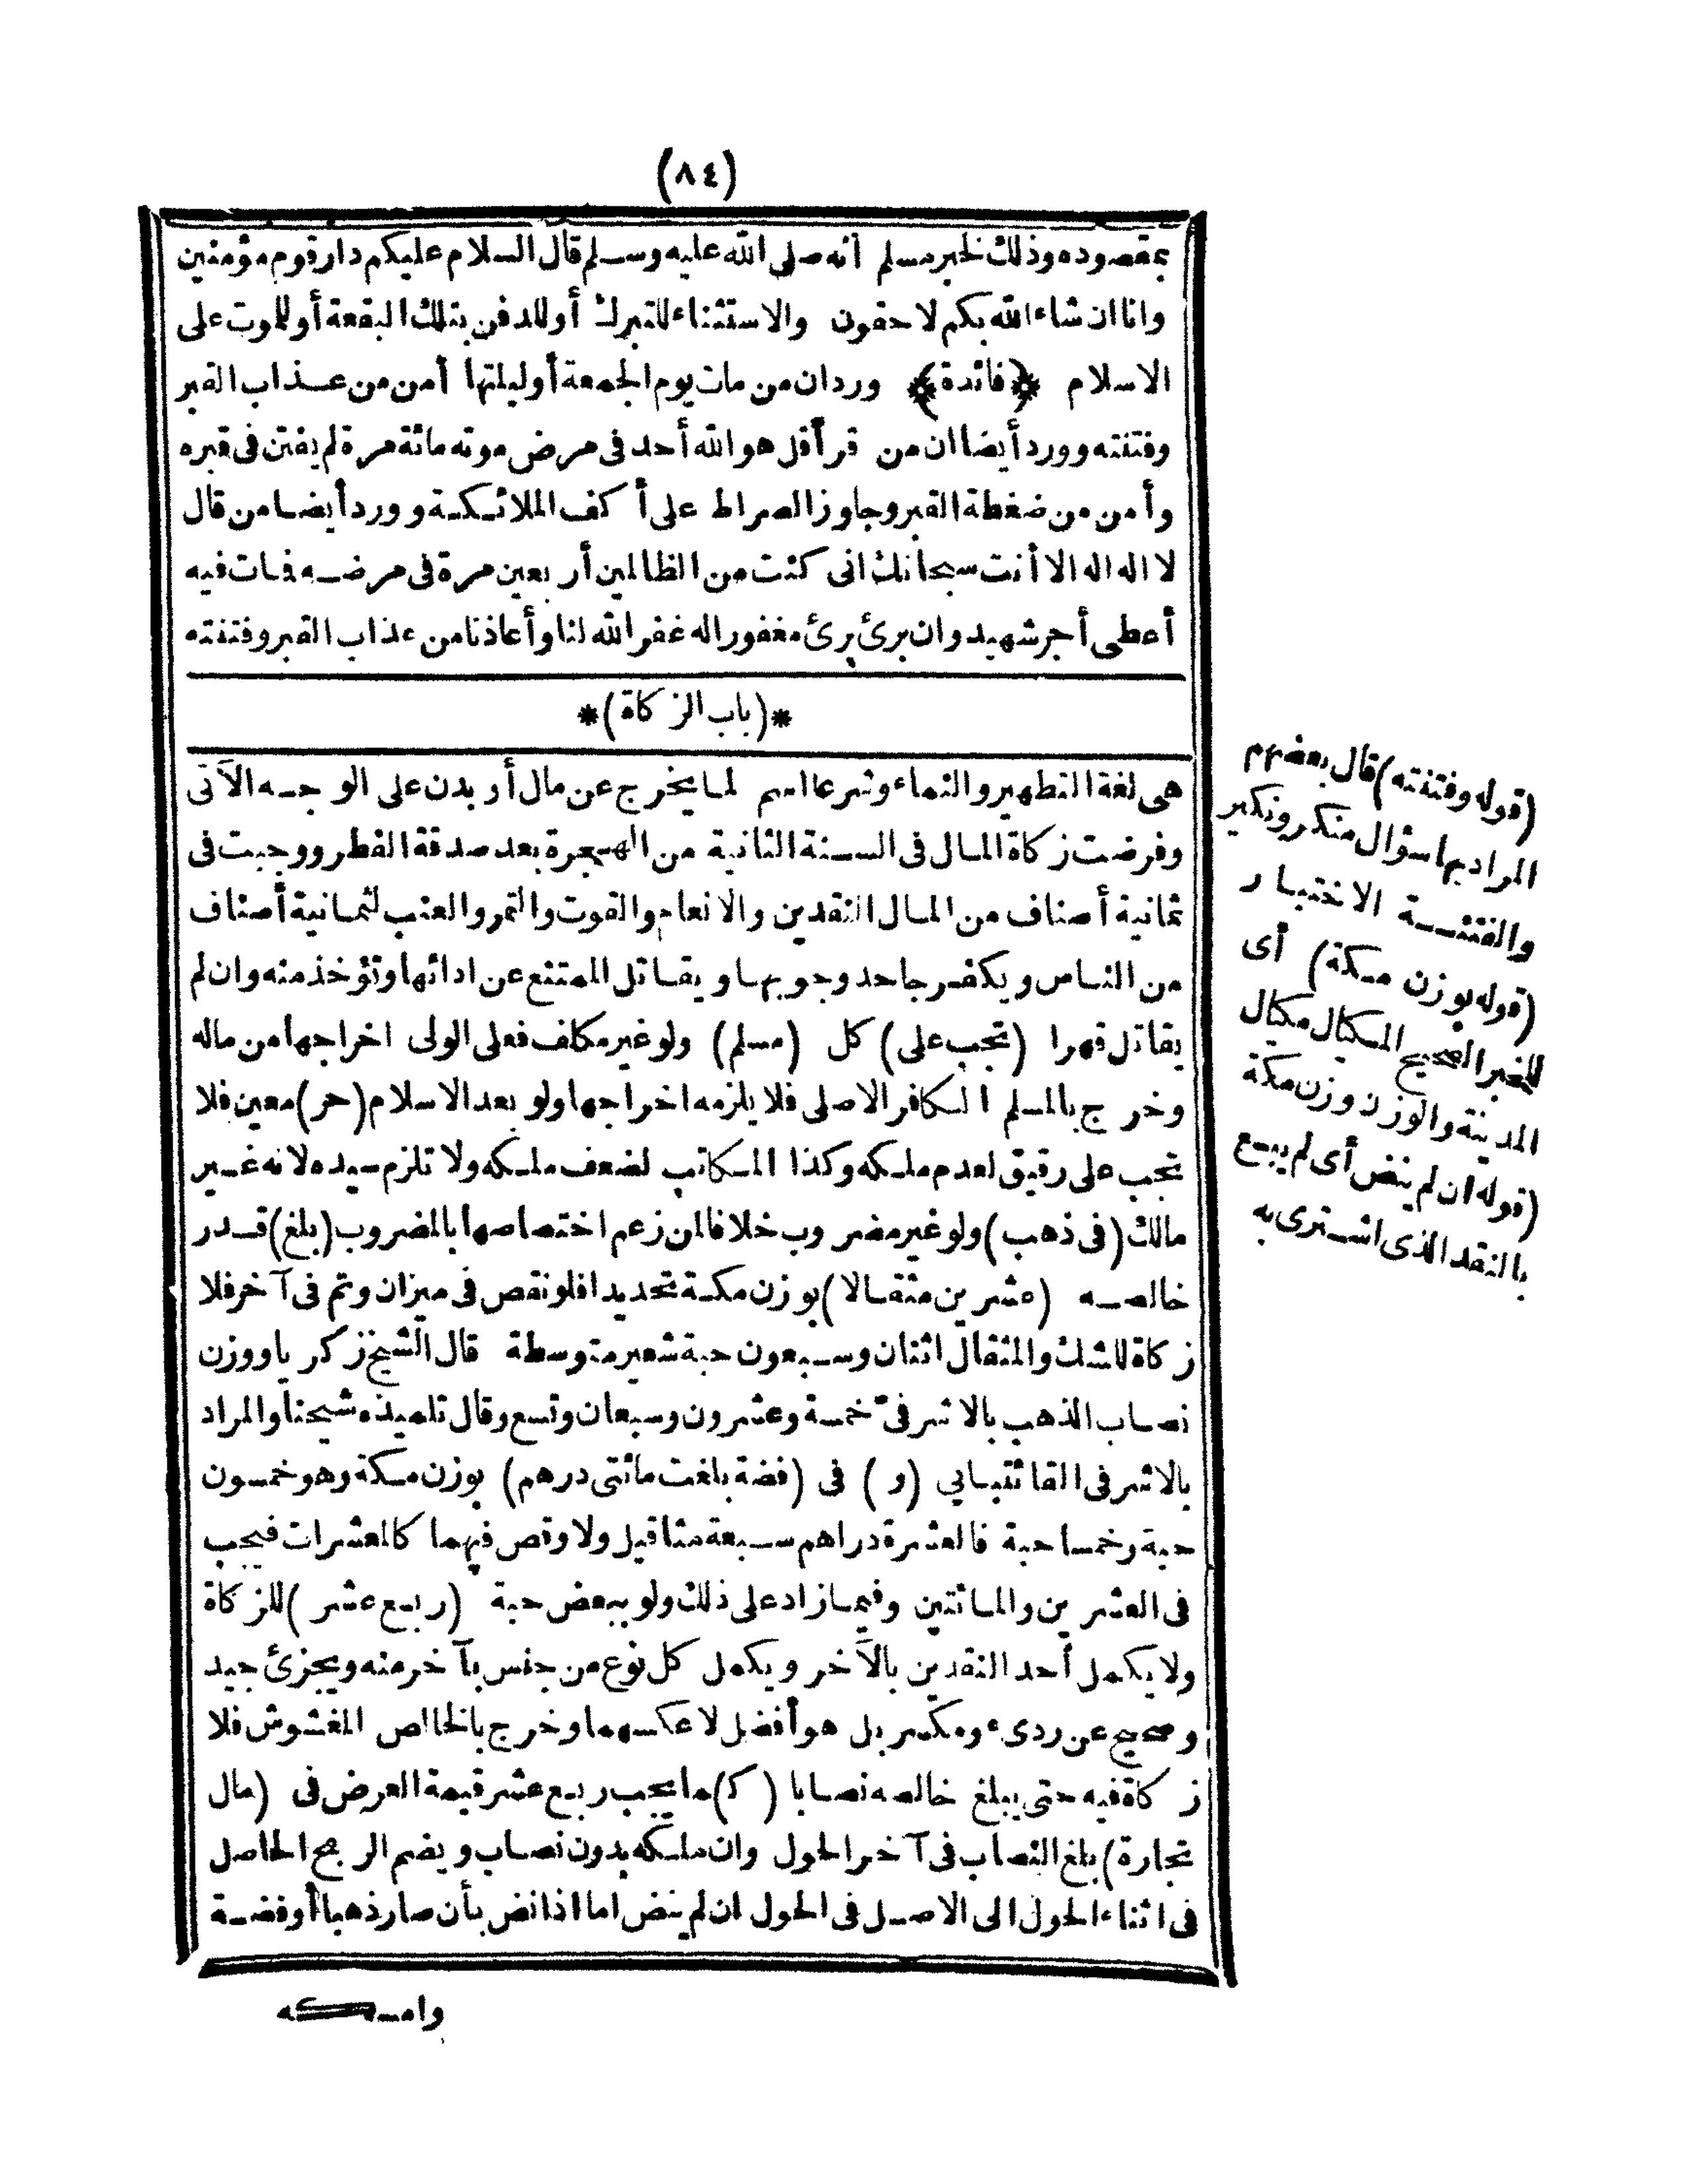 (٨٤)
بمقصوده وذلك لخبر مسلم أنه صلى الله عليه وسلم قال السلام عليكم دار قوم مؤمنين
وانا ان شاء الله بكم لاحقون والاستثناء للتبرك أو للدفن بتلك البقعة أو للموت على
الاسلام ﴿فائدة﴾ ورد ان من مات يوم الجمعة أو ليلتها أمن من عذاب القبر
وفتنته وورد أيضا ان من قرأ قل هو الله أحد فى مرض موته مائة مرة لم يفتن فى قبره
وأمن من ضغطة القبر وجاوز الصراط على أكف الملائكة وورد أيضا من قال
لا اله الا أنت سبحانك انى كنت من الظالمين أربعين مرة فى مرضه فمات فيه
أعطى أجر شهيد وان برئ برئ مغفورا له غفر الله لنا وأعاذنا من عذاب القبر وفتنته
*(باب الزكاة)*
هى لغة التطهير والنماء وشرعا اسم لما يخرج عن مال أو بدن على الوجه الآتى
وفرضت زكاة المال فى السنة الثانية من الهجرة بعد صدقة الفطر ووجبت فى
ثمانية أصناف من المال النقدين والانعام والقوت والتمر والعنب لثمانية أصناف
من الناس ويكفر جاحد وجوبها ويقاتل الممتنع عن ادائها وتؤخذ منه وان لم
يقاتل قهرا (تجب على) كل (مسلم) ولو غير مكلف فعلى الولى اخراجها من ماله
وخرج بالمسلم الكافر الاصلى فلا يلزمه اخراجها ولو بعد الاسلام (حر) معين فلا
تجب على رقيق لعدم ملكه وكذا المكاتب لضعف ملكه ولا تلزم سيده لانه غير
مالك (فى ذهب) ولو غير مضروب خلافا لمن زعم اختصاصها بالمضروب (بلغ) قدر
خالصه (عشرين مثقالا) بوزن مكة تحديدا فلو نقص فى ميزان وتم فى آخر فلا
زكاة للشك والمثقال اثنان وسبعون حبة شعير متوسطة قال الشيخ زكريا ووزن
نصاب الذهب بالاشرفى خمسة وعشرون وسبعان وتسع وقال تلميذه شيخنا والمراد
بالاشرفى القايتبايي (و) فى (فضة بلغت مائتى درهم) بوزن مكة وهو خمسون
حبة وخمسا حبة فالعشرة دراهم سبعة مثاقيل ولا وقص فيهما كالعشرات فيجب
فى العشرين والمائتين وفيما زاد على ذلك ولو ببعض حبة (ربع عشر) للزكاة
ولا يكمل أحد النقدين بالآخر ويكمل كل نوع من جنس بآخر منه ويجزئ جيد
وصحيح عن ردىء ومكسر بل هو أفضل لا عكسهما وخرج بالخالص المغشوش فلا
زكاة فيه حتى يبلغ خالصه نصابا (ك) ما يجب ربع عشر قيمة العرض فى (مال
تجارة) بلغ النصاب فى آخر الحول وان ملكه بدون نصاب ويضم الربح الحاصل
فى اثناء الحول الى الاصل فى الحول ان لم ينض اما اذا نض بأن صار ذهبا أو فضة
وامسكه
(قوله وفتنته) قال بعضهم
المراد بها سؤال منكر ونكير
والفتنة الاختبار
(قوله بوزن مكة) أى
للخبر الصحيح المكيال مكيال
المدينة والوزن وزن مكة
(قوله ان لم ينض أى لم يبع
بالنقد الذى اشترى به